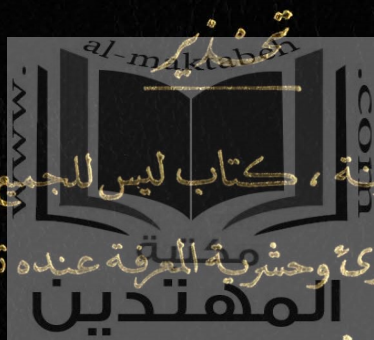 تحذير
al-maktabeh
www.
.com
نة ، كتاب ليس للجميع
ئ وحشرية المعرفة عنده
مكتبة
المهتدين